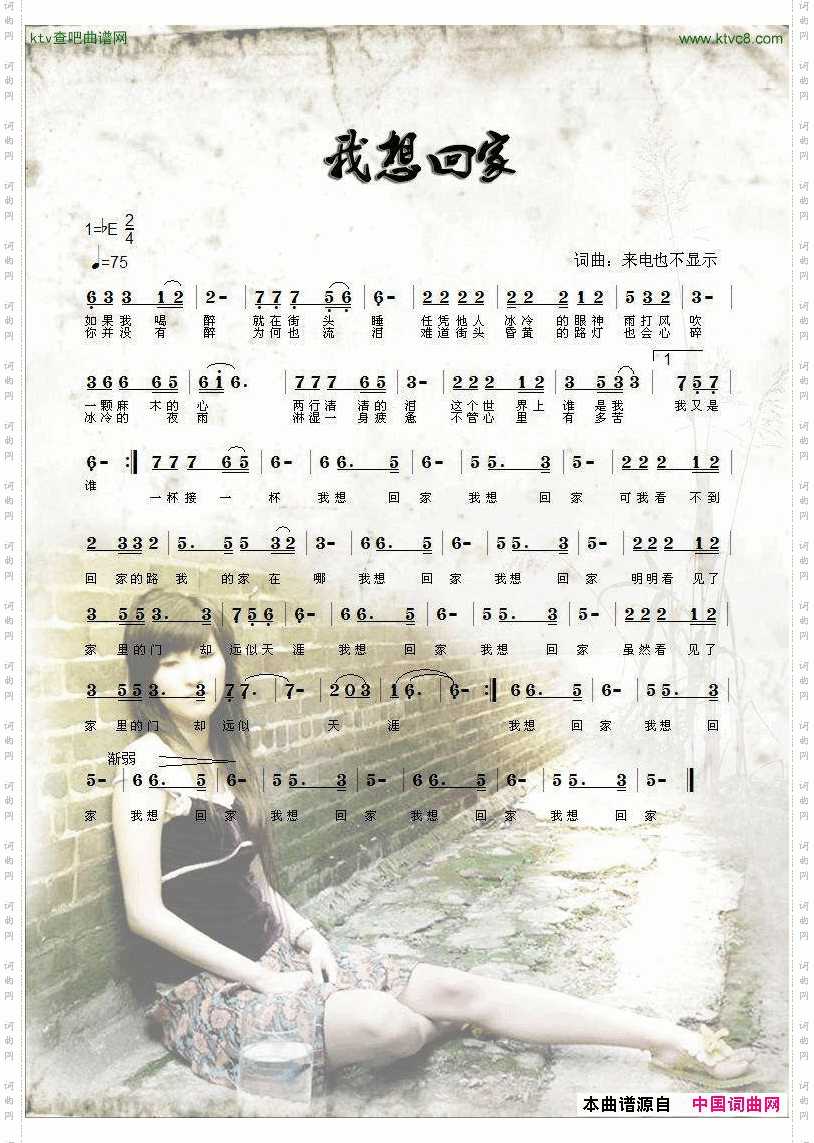 ktv查吧曲谱网 www.ktvc8.com
我想回家
1=♭E 2/4
♩=75 词曲：来电也不显示
6 3 3 1 2 | 2 - | 7 7 7 5 6 | 6 - | 2 2 2 2 | 2 2 2 1 2 | 5 3 2 | 3 - |
如果我 喝 醉 就在街 头 睡 任凭他人 冰冷 的眼神 雨打风 吹
你并没 有 醉 为何也 流 泪 难道街头 昏黄 的路灯 也会心 碎
3 6 6 6 5 | 6 1 6. | 7 7 7 6 5 | 3 - | 2 2 2 1 2 | 3 5 3 3 | 1 7 5 7 |
一颗麻 木的 心 两行清 清的 泪 这个世 界上 谁 是我 我又是
冰冷的 夜 雨 淋湿一 身疲 惫 不管心 里 有 多苦
6 - :| 7 7 7 6 5 | 6 - | 6 6. 5 | 6 - | 5 5. 3 | 5 - | 2 2 2 1 2 |
谁 一杯接 一 杯 我想 回 家 我想 回 家 可我看 不到
2 3 3 2 | 5. 5 5 3 2 | 3 - | 6 6. 5 | 6 - | 5 5. 3 | 5 - | 2 2 2 1 2 |
回 家的路 我 的家 在 哪 我想 回 家 我想 回 家 明明看 见了
3 5 5 3. 3 | 7 5 6 | 6 - | 6 6. 5 | 6 - | 5 5. 3 | 5 - | 2 2 2 1 2 |
家 里的门 却 远似天 涯 我想 回 家 我想 回 家 虽然看 见了
3 5 5 3. 3 | 7 7. | 7 - | 2 0 3 | 1 6. | 6 - :| 6 6. 5 | 6 - | 5 5. 3 |
家 里的门 却 远似 天 涯 我想 回 家 我想 回
渐弱
5 - | 6 6. 5 | 6 - | 5 5. 3 | 5 - | 6 6. 5 | 6 - | 5 5. 3 | 5 - ‖
家 我想 回 家 我想 回 家 我想 回 家 我想 回 家
本曲谱源自 中国词曲网